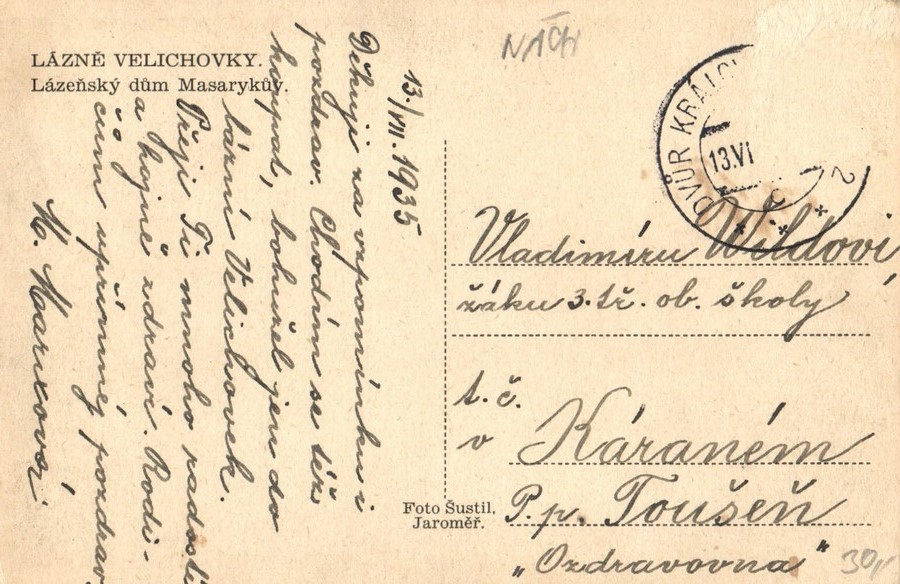 LÁZNĚ VELICHOVKY.
Lázeňský dům Masarykův.
13./VII. 1935
Děkuji za vzpomínku i
pozdrav. Chodím se též
koupat, bohužel jen do
lázní Velichovek.
Přeji Ti mnoho radosti
a hojně zdraví. Rodi-
čům upřímný pozdrav
M. Marxová
NÁCH
DVŮR KRÁLO
13.VI
2
Vladimíru Wildovi
žáku 3. tř. ob. školy
t. č.
v Káraném
P. p. Toušeň
„Ozdravovna"
Foto Šustil,
Jaroměř.
30,-